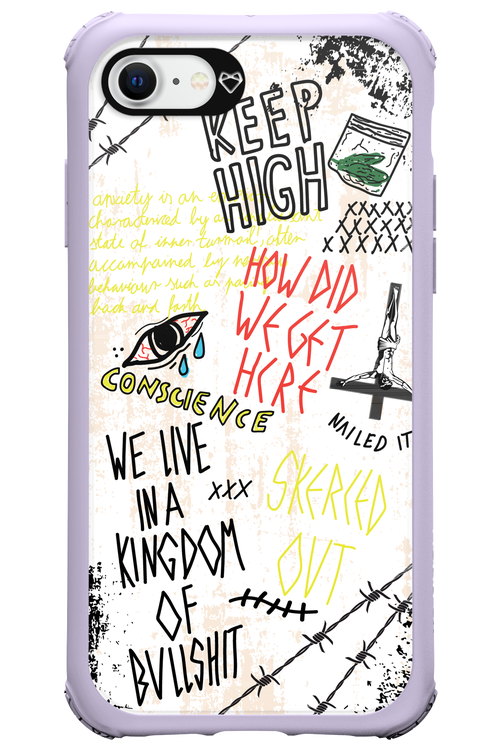 KEEP
HIGH
XXXXX
XXXXXX
XXXXXXX
anxiety is an
characterized by
state of inner turmoil, often
accompanied by
behaviour such as
back and forth
HOW DID
WE GET
HERE
CONSCIENCE
NAILED IT
WE LIVE
IN A
KINGDOM
OF
BULLSHIT
XXX
SKERCED
OUT